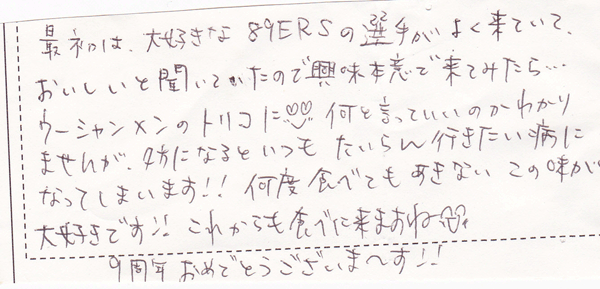 最初は、大好きな89ERSの選手がよく来ていて、
おいしいと聞いていたので興味本意で来てみたら…
ウーシャンメンのトリコに♡♡ 何と言っていいのかわかり
ませんが、夕方になるといつもたいらん行きたい病に
なってしまいます!! 何度食べてもあきないこの味が
大好きです!! これからも食べに来ますね♡
9周年おめでとうございま〜す!!